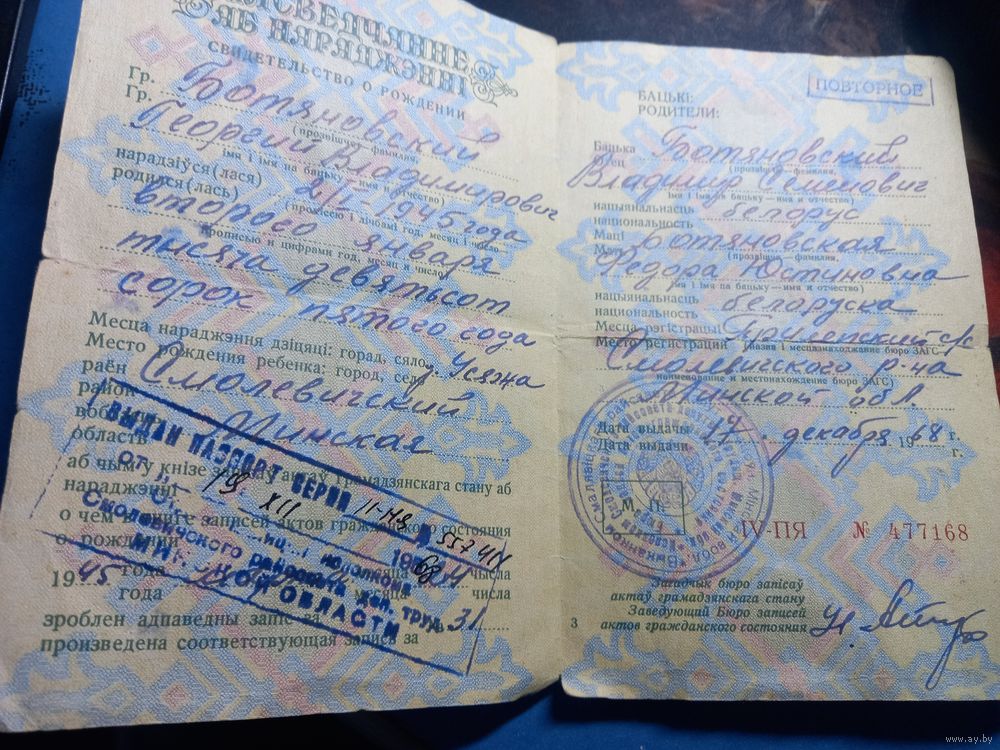 ПАСВЕДЧАННЕ
АБ НАРАДЖЭННІ
СВИДЕТЕЛЬСТВО О РОЖДЕНИИ
Гр.
Гр. Ботяновский
(прозвішча — фамилия,
Георгий Владимирович
імя і імя па бацьку — имя и отчество)
нарадзіўся(лася)
родился(лась) 2/I-1945 года
(прапіссю і лічбамі год, месяц і число
второго января
прописью и цифрами год, месяц и число)
тысяча девятьсот
сорок пятого года
Месца нараджэння дзіцяці: горад, сяло
Место рождения ребенка: город, село д. Усяжа
раён
район Смолевичский
вобласць
область Минская
аб чым у кнізе запісаў актаў грамадзянскага стану аб
нараджэнні
о чем в книге записей актов гражданского состояния
о рождении
1945 года месяца 4 чысла
года месяца числа
зроблен адпаведны запіс за 31
произведена соответствующая запись за
ВЫДАН ПАСПОРТ СЕРИИ II-НЯ
557411
от 19 XII 1968
Смолевичского районн. деп. труд.
МИНСКОЙ ОБЛАСТИ
ПОВТОРНОЕ
БАЦЬКІ:
РОДИТЕЛИ:
Бацька
Отец Ботяновский
(прозвішча — фамилия,
Владимир Семенович
імя і імя па бацьку — имя и отчество)
нацыянальнасць
национальность белорус
Маці
Мать Ботяновская
(прозвішча — фамилия,
Федора Юстиновна
імя і імя па бацьку — имя и отчество)
нацыянальнасць
национальность белоруска
Месца рэгістрацыі
Место регистрации
(назва і месцазнаходжанне бюро ЗАГС —
Смолевичского р-на
наименование и местонахождение бюро ЗАГС)
Минской обл.
Дата выдачы
Дата выдачи 17 декабря 1968 г.
г.
М. П.
IV-ПЯ № 477168
Загадчык бюро запісаў
актаў грамадзянскага стану
Заведующий Бюро записей
актов гражданского состояния
3
www.ay.by